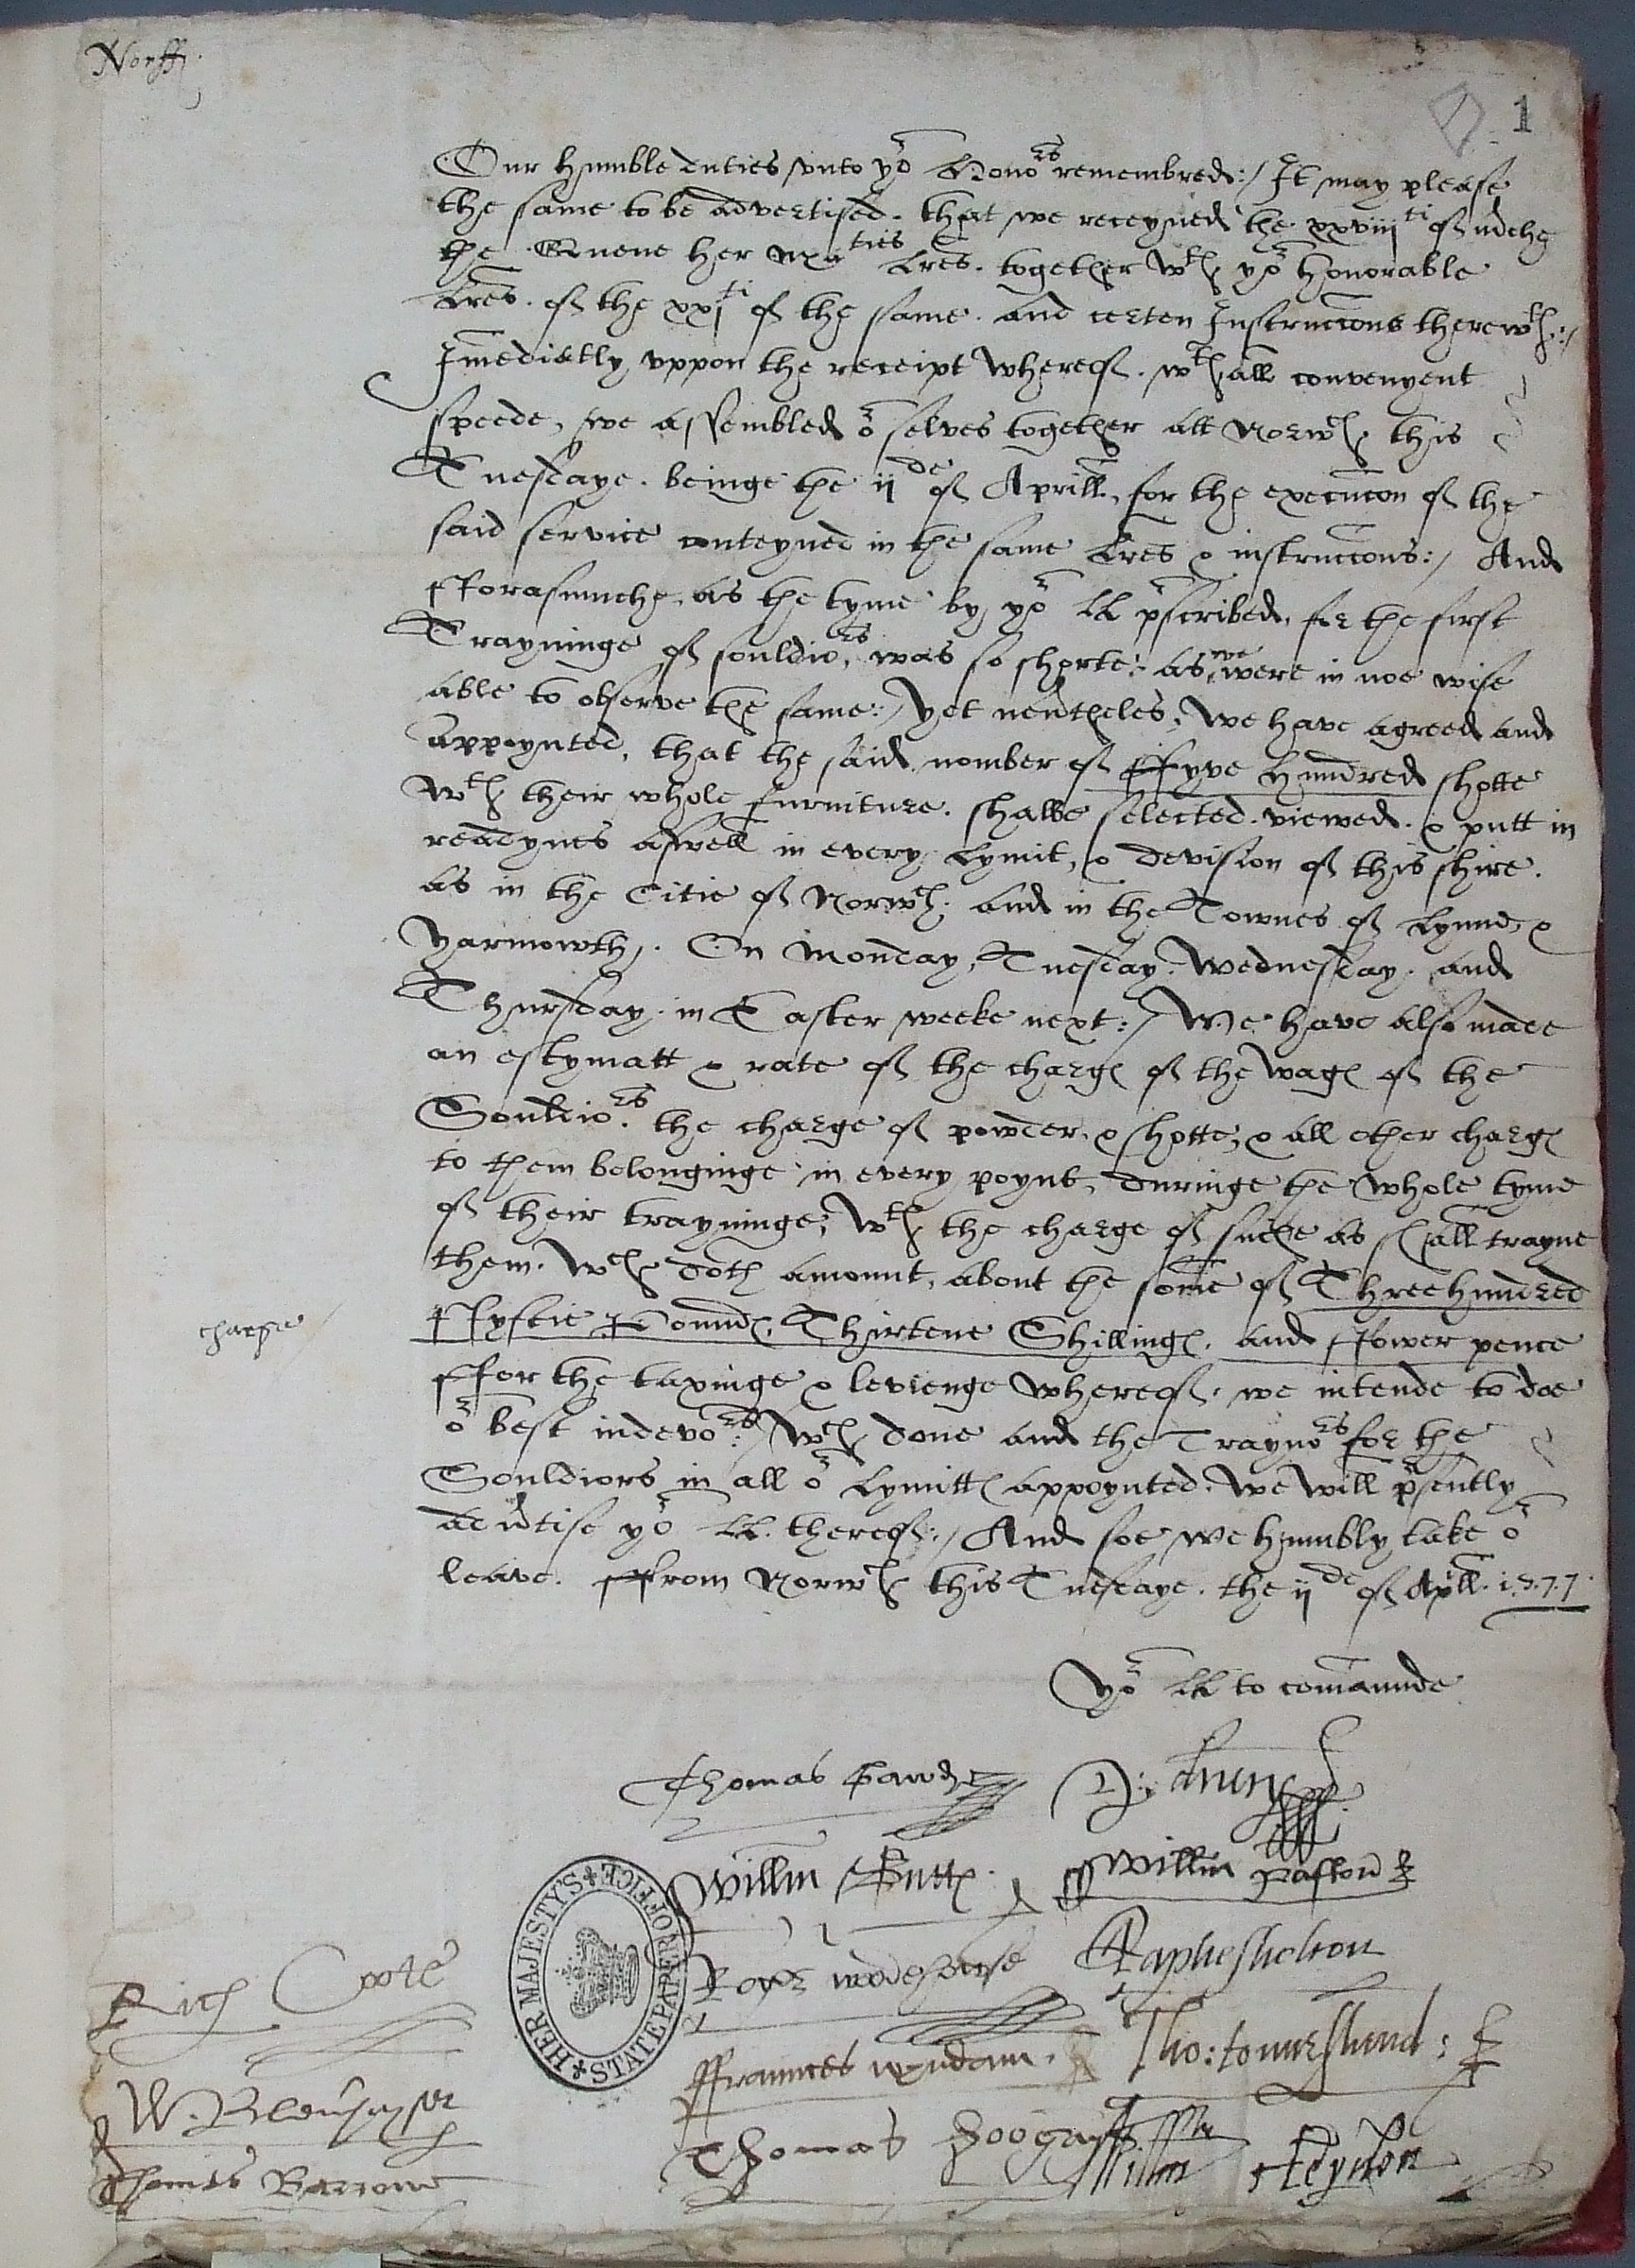 Norff.
1
Our humble duties vnto yor Honors remembred:/ It may please
the same to be advertised. that we receyued the xxviijti of m̃che
the Quene her Maties Lres. together wth yor honorable
Lres. of the xxjti of the same. and certen Instruccons therewth:/
Imediatly vppon the receipt whereof. wth all convenyent
speede, we assembled or selves together att Norwch this
Tuesdaye. beinge the ijde of Aprill, for the execucon of the
said service conteyned in the same Lres & instruccons:/ And
fforasmuche as the tyme by yor LL p̃scribed, for the first
Trayninge of souldiors, was so shorte: as we were in noe wise
able to observe the same:/ yet neũtheles, We have agreed and
appoynted, that the said nomber of ffyve hundred shotte
Wth their whole furniture. shalbe selected. viewed. & putt in
readynes aswell in every Lymit, & devision of this shire.
as in the Citie of Norwch. and in the Townes of Lynne, &
Yarmowth. On Monday, Tuesday. Wednesday. and
Thursday. in Easter weeke next:/ We have also made
an estymatt & rate of the charges of the wages of the
Souldiors. the charge of powder, & shotte, & all other charges
to them belonginge in every poynt, duringe the whole tyme
of their trayninge, wth the charge of suche as shall trayne
them. Wch doth amount, about the some of Three hundred
ffyftie Poundes, Thirtene Shillinges. and ffower pence
charge
ffor the taxinge & levienge whereof. we intende to doe
or best indevors:/ Wch done and the Traynors for the
Souldiors in all or Lymittes appoynted. We will p̃sently
adũtise yor LL. thereof:/ And soe we humbly take or
leave. ffrom Norwch this Tuesdaye. the ijde of Aprill. 1577.
Yor LL to comaunde
Thomas Gawdy
Willm Butts
Willm Paston
Roger wodehouse
Raphe Shelton
ffraunces wyndam
Tho: townshend
Rich Coote
W. Blenerhayset
Thomas Barrow
Willm Heydon
HER MAJESTY'S STATE PAPER OFFICE